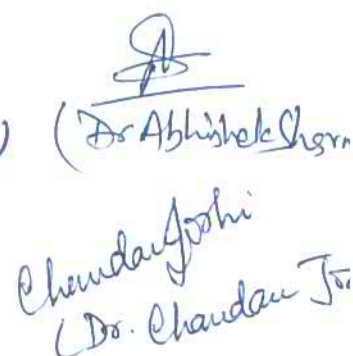 ) (Dr Abhishek Sharm
Chandan Joshi
(Dr. Chandan Jo